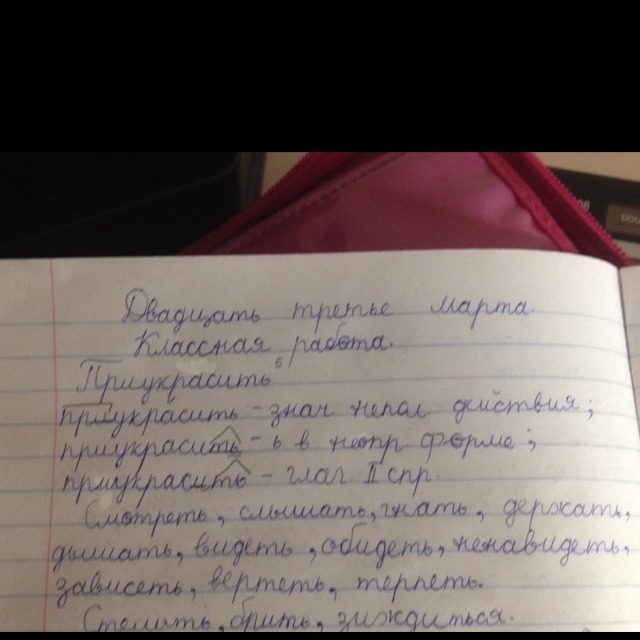 Двадцать третье марта.
Классная работа.
Приукрасить
приукрасить - знач непол. действия;
приукрасить - ь в неопр форме;
приукрасить - глаг II спр.
Смотреть, слышать, гнать, держать,
дышать, видеть, обидеть, ненавидеть,
зависеть, вертеть, терпеть.
Стелить, брить, зиждиться.